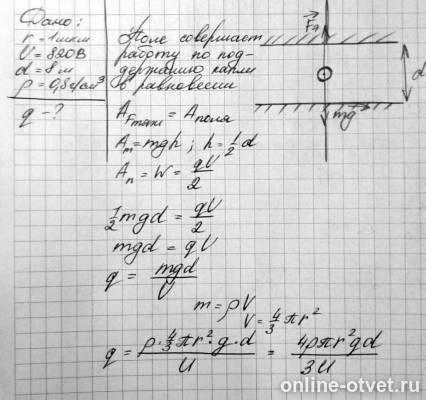 Дано:
r = 1 мкм
U = 820 В
d = 8 м
ρ = 0,8 г/см³
q - ?
Поле совершает
работу по под-
держанию капли
в равновесии
A_Fтяж = A_поля
A_т = mgh ; h = 1/2 d
A_п = W = qU/2
1/2 mgd = qU/2
mgd = qU
q = mgd/U
m = ρV
V = 4/3 πr²
q = ρ·4/3πr²·g·d/U = 4ρπr²gd/3U
F_A
d
mg
online-otvet.ru